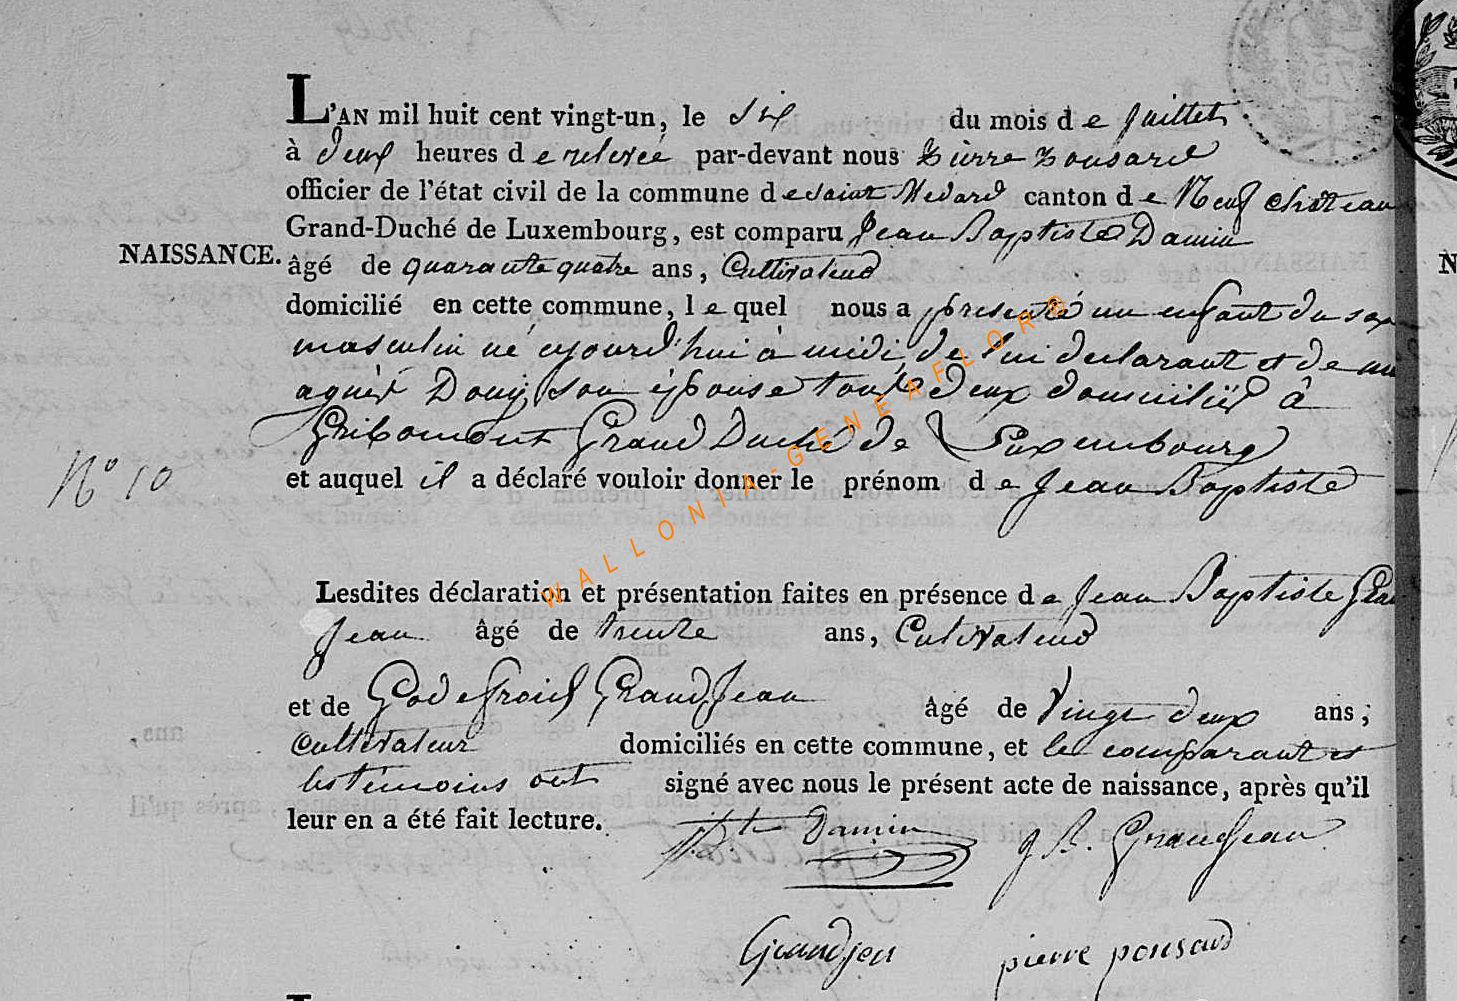 L'AN mil huit cent vingt-un, le six du mois de Juillet
à deux heures de relevée par-devant nous Pierre Ponsard
officier de l'état civil de la commune de Saint Médard canton de Neufchâteau
Grand-Duché de Luxembourg, est comparu Jean Baptiste Damin
NAISSANCE. âgé de quarante quatre ans, Cultivateur
domicilié en cette commune, lequel nous a présenté un enfant du sexe
masculin né aujourd'hui à midi, de lui déclarant et de
agnès Douy son épouse tous deux domiciliés à
Gribomont Grand Duché de Luxembourg
N° 10
et auquel il a déclaré vouloir donner le prénom de Jean Baptiste
Lesdites déclaration et présentation faites en présence de Jean Baptiste Gran
Jean âgé de trente ans, Cultivateur
et de Godefroid GrandJean âgé de Vingt deux ans,
cultivateur domiciliés en cette commune, et le comparant et
les témoins ont signé avec nous le présent acte de naissance, après qu'il
leur en a été fait lecture.
Damin J B. Grandjean
Grandjen pierre ponsard
WALLONIA-GENEAFLORE